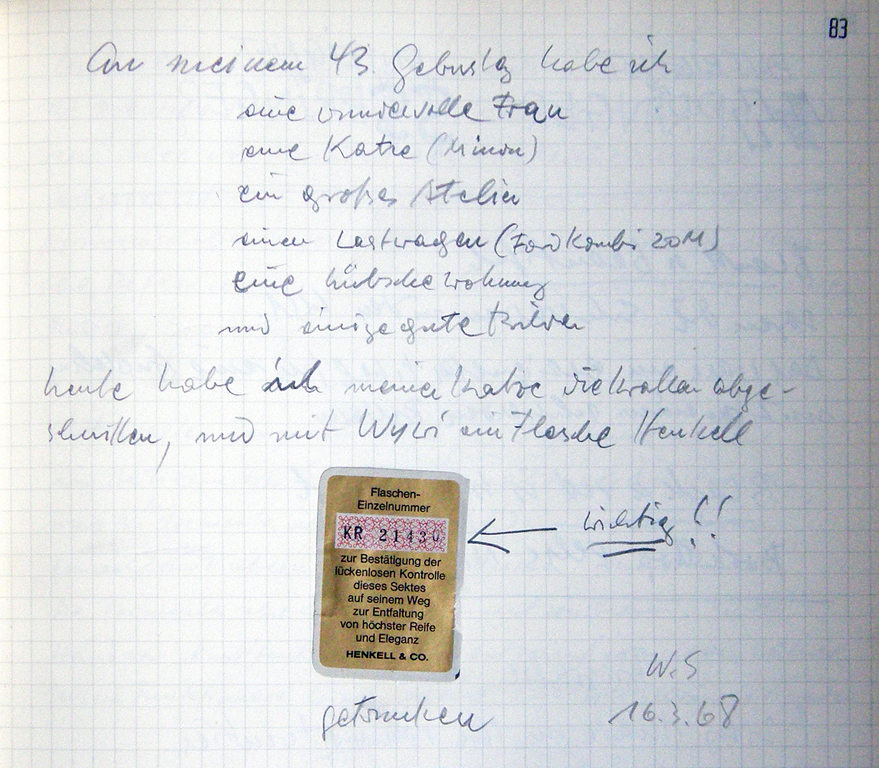 83
An meinem 43. Geburtstag habe ich
eine wundervolle Frau
eine Katze (Minou)
ein großes Atelier
einen Lastwagen (Ford Kombi 20M)
eine hübsche Wohnung
und einige gute Bilder
heute habe ich meiner Katze die Krallen abge-
schnitten, und mit Wywi ein Flasche Henkell
Flaschen-
Einzelnummer
KR 21430
zur Bestätigung der
lückenlosen Kontrolle
dieses Sektes
auf seinem Weg
zur Entfaltung
von höchster Reife
und Eleganz
HENKELL & CO.
wichtig!!
getrunken
W.S
16.3.68